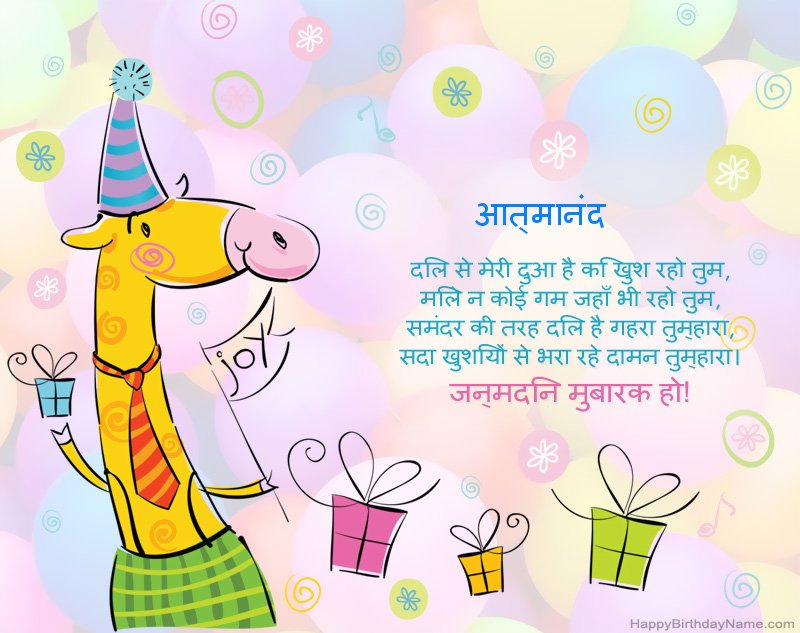 आत्‌मानंद
दलि से मेरी दुआ है क खिुश रहो तुम,
मलिे न कोई गम जहाँ भी रहो तुम,
समंदर की तरह दलि है गहरा तुम्‌हारा,
सदा खुशयिों से भरा रहे दामन तुम्‌हारा।
जन्‌मदनि मुबारक हो!
joy
HappyBirthdayName.com